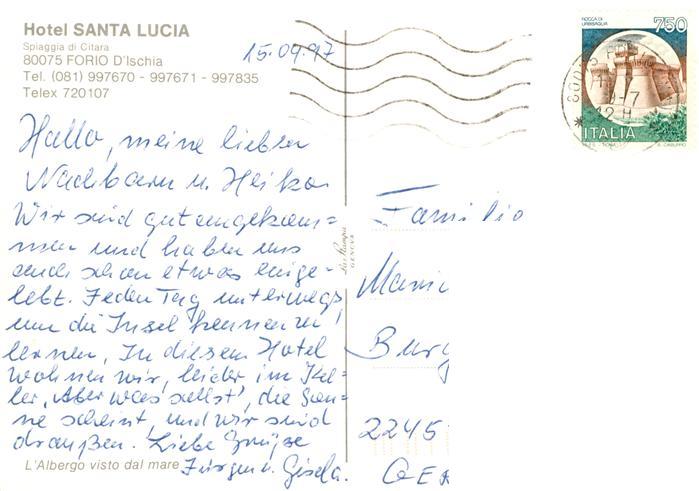 Hotel SANTA LUCIA
Spiaggia di Citara
80075 FORIO D'Ischia
Tel. (081) 997670 - 997671 - 997835
Telex 720107
15.09.97
Hallo, meine lieben
Nachbarn u. Heiko.
Wir sind gut angekom-
men und haben uns
auch schon etwas einge-
lebt. Jeden Tag unterwegs
um die Insel kennen zu
lernen. In diesem Hotel
wohnen wir, leider im Kel-
ler, Aber was sollst', die Son-
ne scheint, und wir sind
draußen. Liebe Grüße
Jürgen u. Gisela.
L'Albergo visto dal mare
La Stampa
GENOVA
ROCCA DI
URBISAGLIA
750
ITALIA
80075
12 H
Familie
Burg
2245